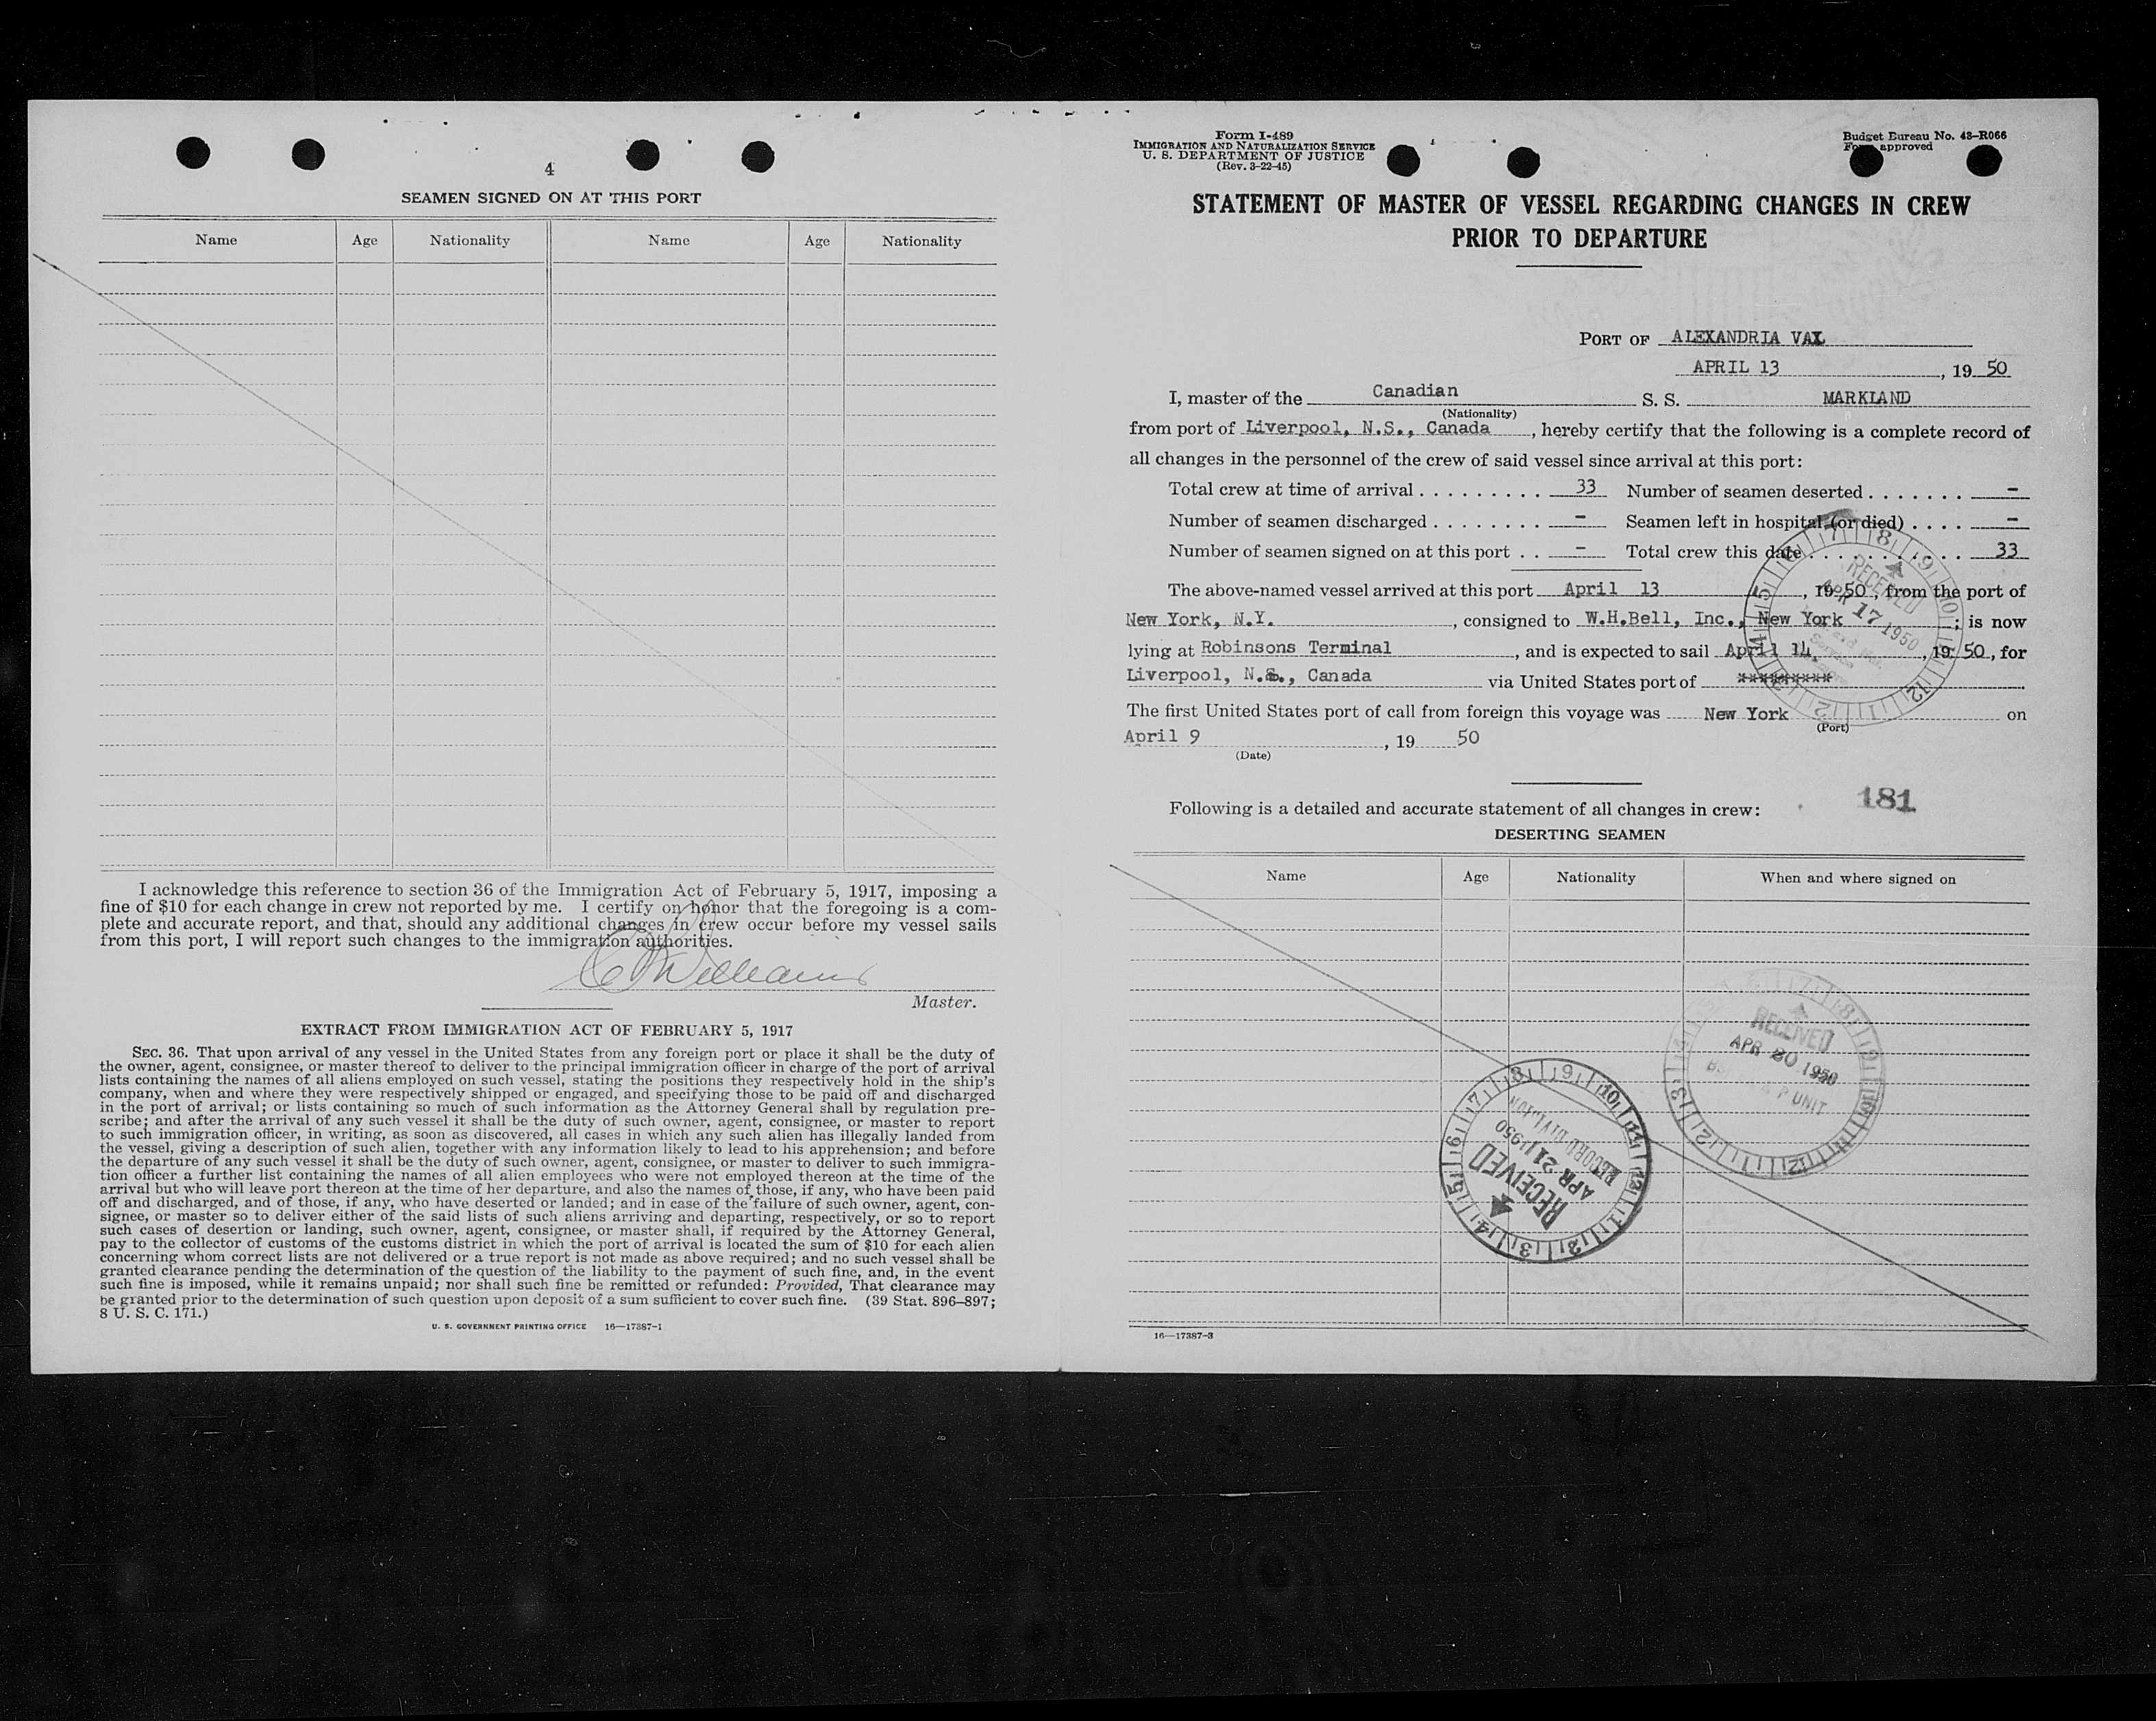 4
SEAMEN SIGNED ON AT THIS PORT
Name Age Nationality Name Age Nationality
I acknowledge this reference to section 36 of the Immigration Act of February 5, 1917, imposing a
fine of $10 for each change in crew not reported by me. I certify on honor that the foregoing is a com-
plete and accurate report, and that, should any additional changes in crew occur before my vessel sails
from this port, I will report such changes to the immigration authorities.
Williams
Master.
EXTRACT FROM IMMIGRATION ACT OF FEBRUARY 5, 1917
SEC. 36. That upon arrival of any vessel in the United States from any foreign port or place it shall be the duty of
the owner, agent, consignee, or master thereof to deliver to the principal immigration officer in charge of the port of arrival
lists containing the names of all aliens employed on such vessel, stating the positions they respectively hold in the ship's
company, when and where they were respectively shipped or engaged, and specifying those to be paid off and discharged
in the port of arrival; or lists containing so much of such information as the Attorney General shall by regulation pre-
scribe; and after the arrival of any such vessel it shall be the duty of such owner, agent, consignee, or master to report
to such immigration officer, in writing, as soon as discovered, all cases in which any such alien has illegally landed from
the vessel, giving a description of such alien, together with any information likely to lead to his apprehension; and before
the departure of any such vessel it shall be the duty of such owner, agent, consignee, or master to deliver to such immigra-
tion officer a further list containing the names of all alien employees who were not employed thereon at the time of the
arrival but who will leave port thereon at the time of her departure, and also the names of those, if any, who have been paid
off and discharged, and of those, if any, who have deserted or landed; and in case of the failure of such owner, agent, con-
signee, or master so to deliver either of the said lists of such aliens arriving and departing, respectively, or so to report
such cases of desertion or landing, such owner, agent, consignee, or master shall, if required by the Attorney General,
pay to the collector of customs of the customs district in which the port of arrival is located the sum of $10 for each alien
concerning whom correct lists are not delivered or a true report is not made as above required; and no such vessel shall be
granted clearance pending the determination of the question of the liability to the payment of such fine, and, in the event
such fine is imposed, while it remains unpaid; nor shall such fine be remitted or refunded: Provided, That clearance may
be granted prior to the determination of such question upon deposit of a sum sufficient to cover such fine. (39 Stat. 896–897;
8 U. S. C. 171.)
U. S. GOVERNMENT PRINTING OFFICE 16—17387-1
Form I-489
IMMIGRATION AND NATURALIZATION SERVICE
U. S. DEPARTMENT OF JUSTICE
(Rev. 3-22-45)
Budget Bureau No. 43–R066
approved
STATEMENT OF MASTER OF VESSEL REGARDING CHANGES IN CREW
PRIOR TO DEPARTURE
PORT OF ALEXANDRIA VA
APRIL 13, 19 50
I, master of the Canadian S. S. MARKLAND
(Nationality)
from port of Liverpool, N.S., Canada, hereby certify that the following is a complete record of
all changes in the personnel of the crew of said vessel since arrival at this port:
Total crew at time of arrival . . . . . . . . . 33 Number of seamen deserted . . . . . . . -
Number of seamen discharged . . . . . . . . - Seamen left in hospital (or died) . . . . -
Number of seamen signed on at this port . . - Total crew this date . . . . . . . . . . 33
The above-named vessel arrived at this port April 13, 19 50, from the port of
New York, N.Y., consigned to W.H.Bell, Inc., New York; is now
lying at Robinsons Terminal, and is expected to sail April 14, 19 50, for
Liverpool, N.S., Canada via United States port of **********
The first United States port of call from foreign this voyage was New York on
(Port)
April 9, 19 50
(Date)
RECEIVED
APR 17 1950
Following is a detailed and accurate statement of all changes in crew: 181
DESERTING SEAMEN
Name Age Nationality When and where signed on
RECEIVED
APR 20 1950
UNIT
RECEIVED
APR 21 1950
RECORD DIVISION
16—17387-3